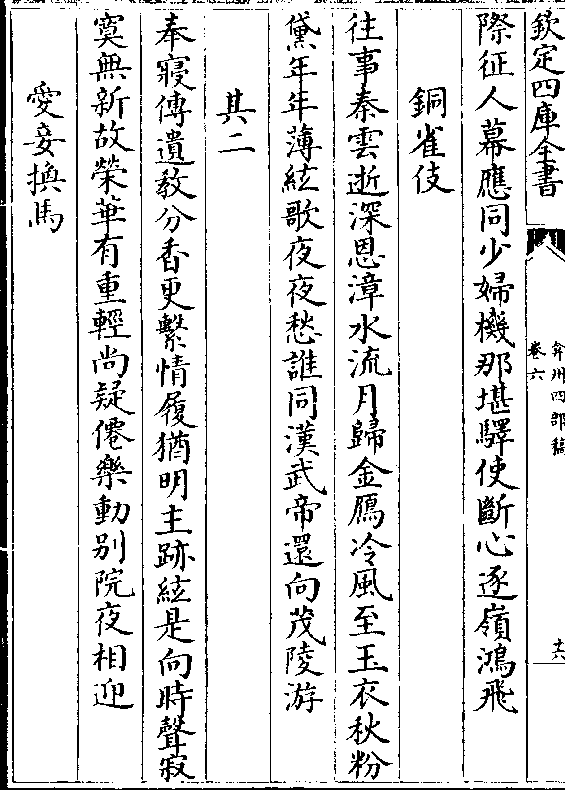 欽定四庫全書
弇州四部稿
卷六
十六
際征人幕應同少婦機那堪驛使斷心逐嶺鴻飛
銅雀伎
往事秦雲逝深恩漳水流月歸金鴈冷風至玉衣秋粉
黛年年薄絃歌夜夜愁誰同漢武帝還向茂陵游
其二
奉寢傳遺敎分香更繫情履猶明主跡絃是向時聲寂
寞無新故榮華有重輕尚疑僊樂動别院夜相迎
愛妾換馬